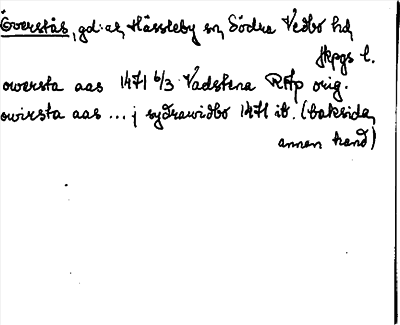 Överstås, gd. ar, Hässleby sn, Södra Vedbo hd,
Jkpgs l.
owersta aas 1471 6/3 Vadstena RAp orig.
owirsta aas ... j sydrawidbo 1471 ib. (baksida,
annan hand)